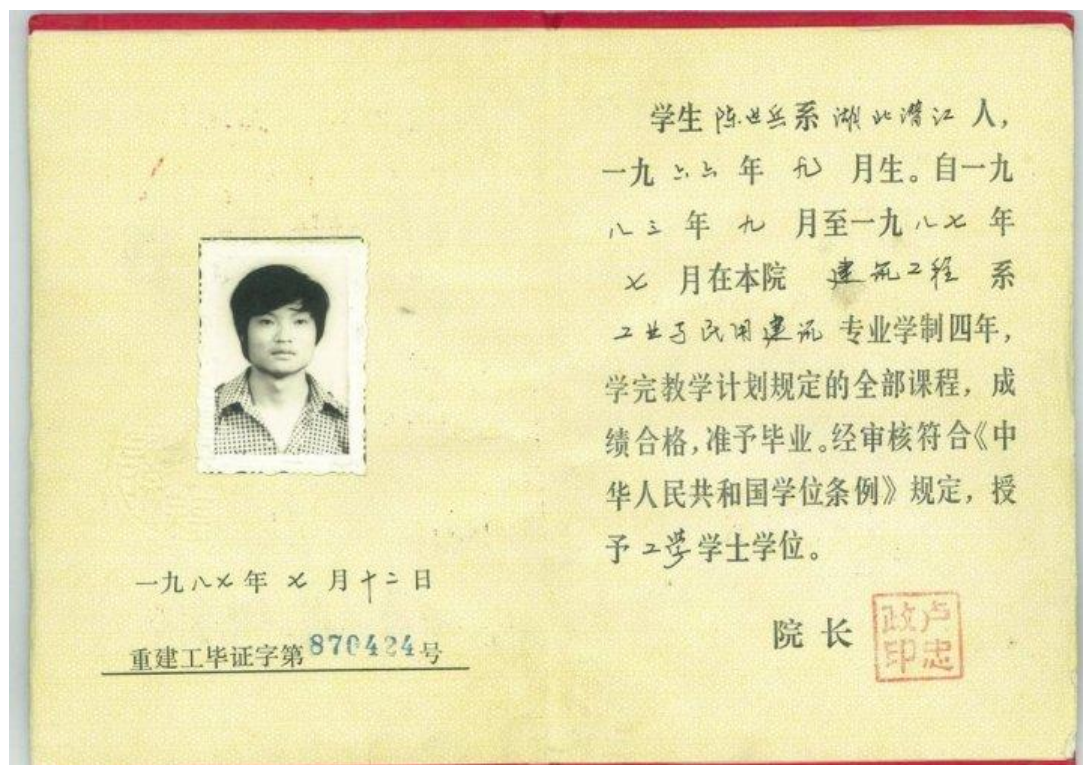 一九八七年七月十二日
重建工毕证字第870424号
学生陈世岳系湖北潜江人,
一九六六年九月生。自一九
八三年九月至一九八七年
七月在本院 建筑工程 系
工业与民用建筑专业学制四年,
学完教学计划规定的全部课程,成
绩合格,准予毕业。经审核符合《中
华人民共和国学位条例》规定,授
予工学学士学位。
院长
卢忠政印